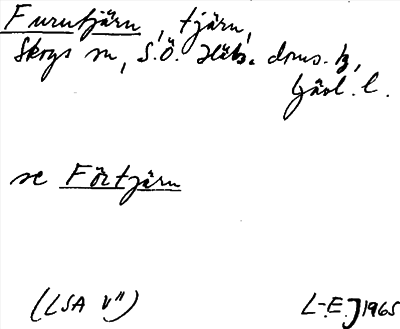 Furutjärn, tjärn,
Skogs sn, S.Ö. Häls. doms. tg,
Gävl. l.
se Förtjärn
(LSA V") L-E.J 1965